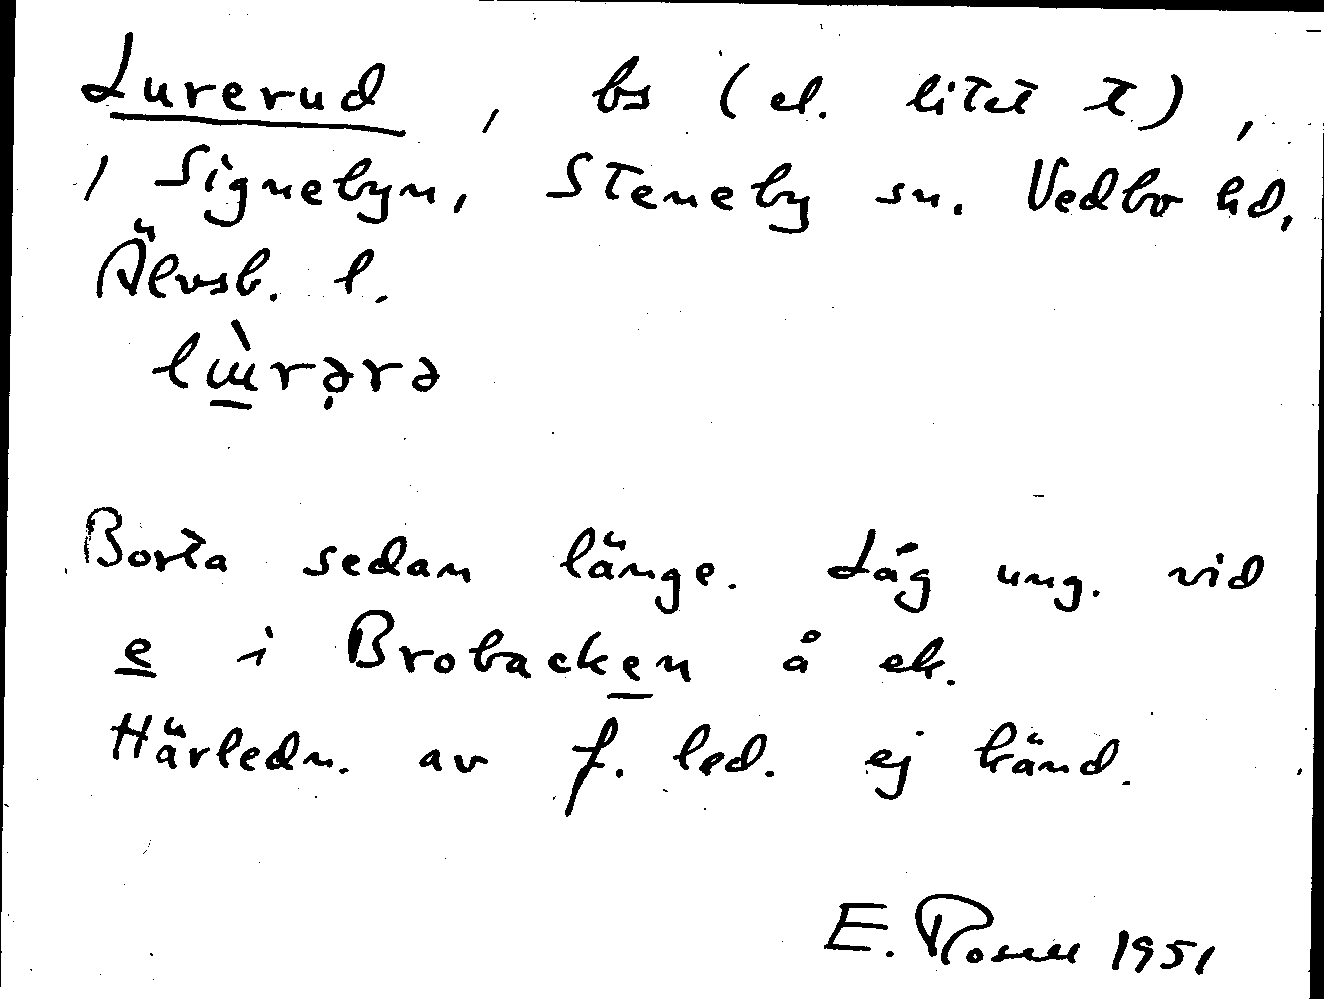 Lurerud, bs (el. litet t),
i Signebyn, Steneby sn. Vedbo hd,
Älvsb. l.
lɯ̀rə̣rə
Borta sedan länge. Låg ung. vid
e i Brobacken å ek.
Härledn. av f. led. ej känd.
E. Rosell 1951